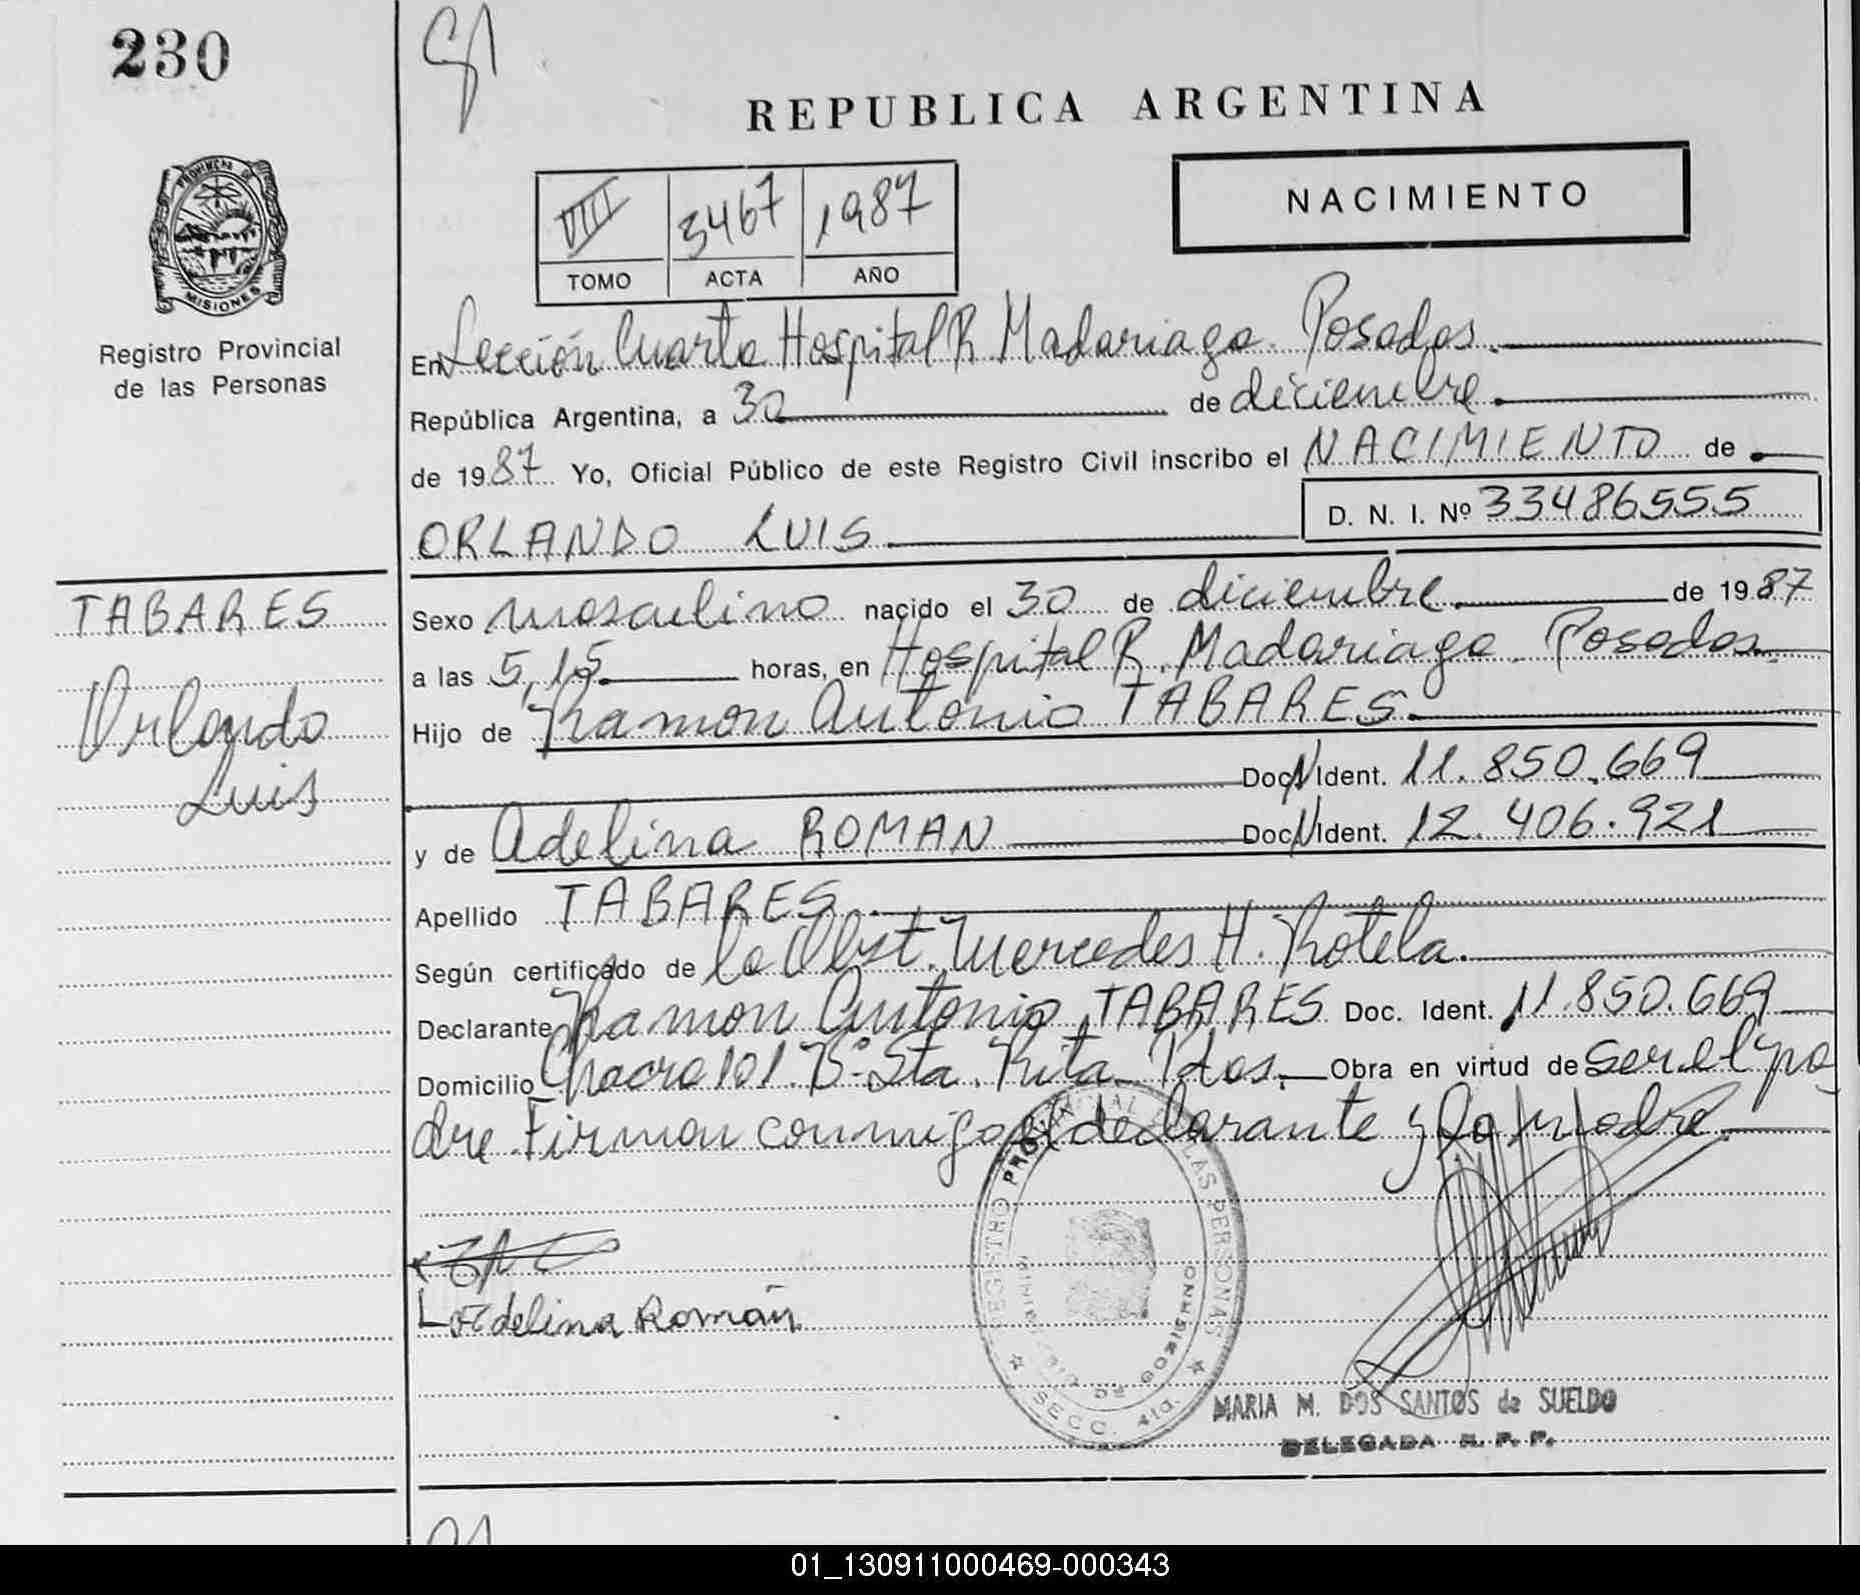 230
REPUBLICA ARGENTINA
NACIMIENTO
VIII 3467 1987
TOMO ACTA AÑO
PROVINCIA DE
MISIONES
Registro Provincial
de las Personas
En Sección Cuarta Hospital R. Madariaga. Posadas.
República Argentina, a 30 de diciembre.
de 1987 Yo, Oficial Público de este Registro Civil inscribo el NACIMIENTO de
ORLANDO LUIS D. N. I. Nº 33486555
TABARES
Orlando
Luis
Sexo masculino nacido el 30 de diciembre. de 1987
a las 5,15. horas, en Hospital R. Madariaga. Posadas.
Hijo de Ramon Antonio TABARES.
Doc N Ident. 11.850.669
y de Adelina ROMAN Doc N Ident. 12.406.921
Apellido TABARES.
Según certificado de la Obst. Mercedes H. Rotela.
Declarante Ramon Antonio TABARES Doc. Ident. 11.850.669
Domicilio Chacra 101. Bº Sta. Rita. Pdas. Obra en virtud de ser el pa
dre. Firman conmigo el declarante y la madre.
Adelina Román
REGISTRO PROVINCIAL DE LAS PERSONAS
MINISTERIO DE GOBIERNO
SECC. 4ta.
MARIA M. DOS SANTOS de SUELDO
DELEGADA R. P. P.
01_130911000469-000343